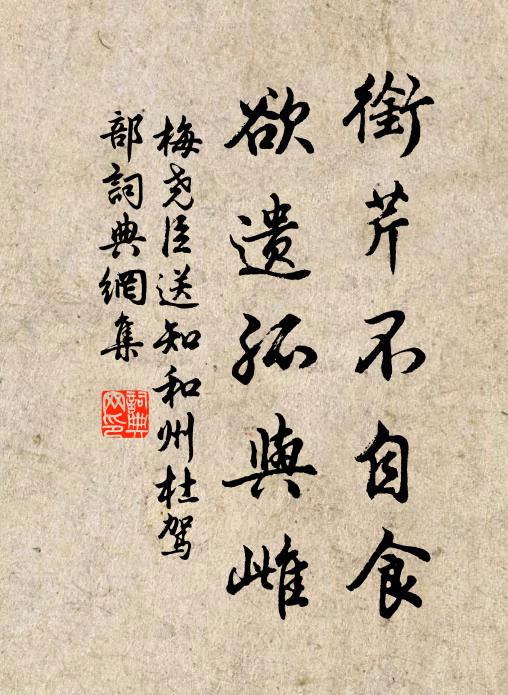 銜芹不自食
欲遺孤與雌
梅尧臣送知和州杜駕
部詞典網集
詞典網印